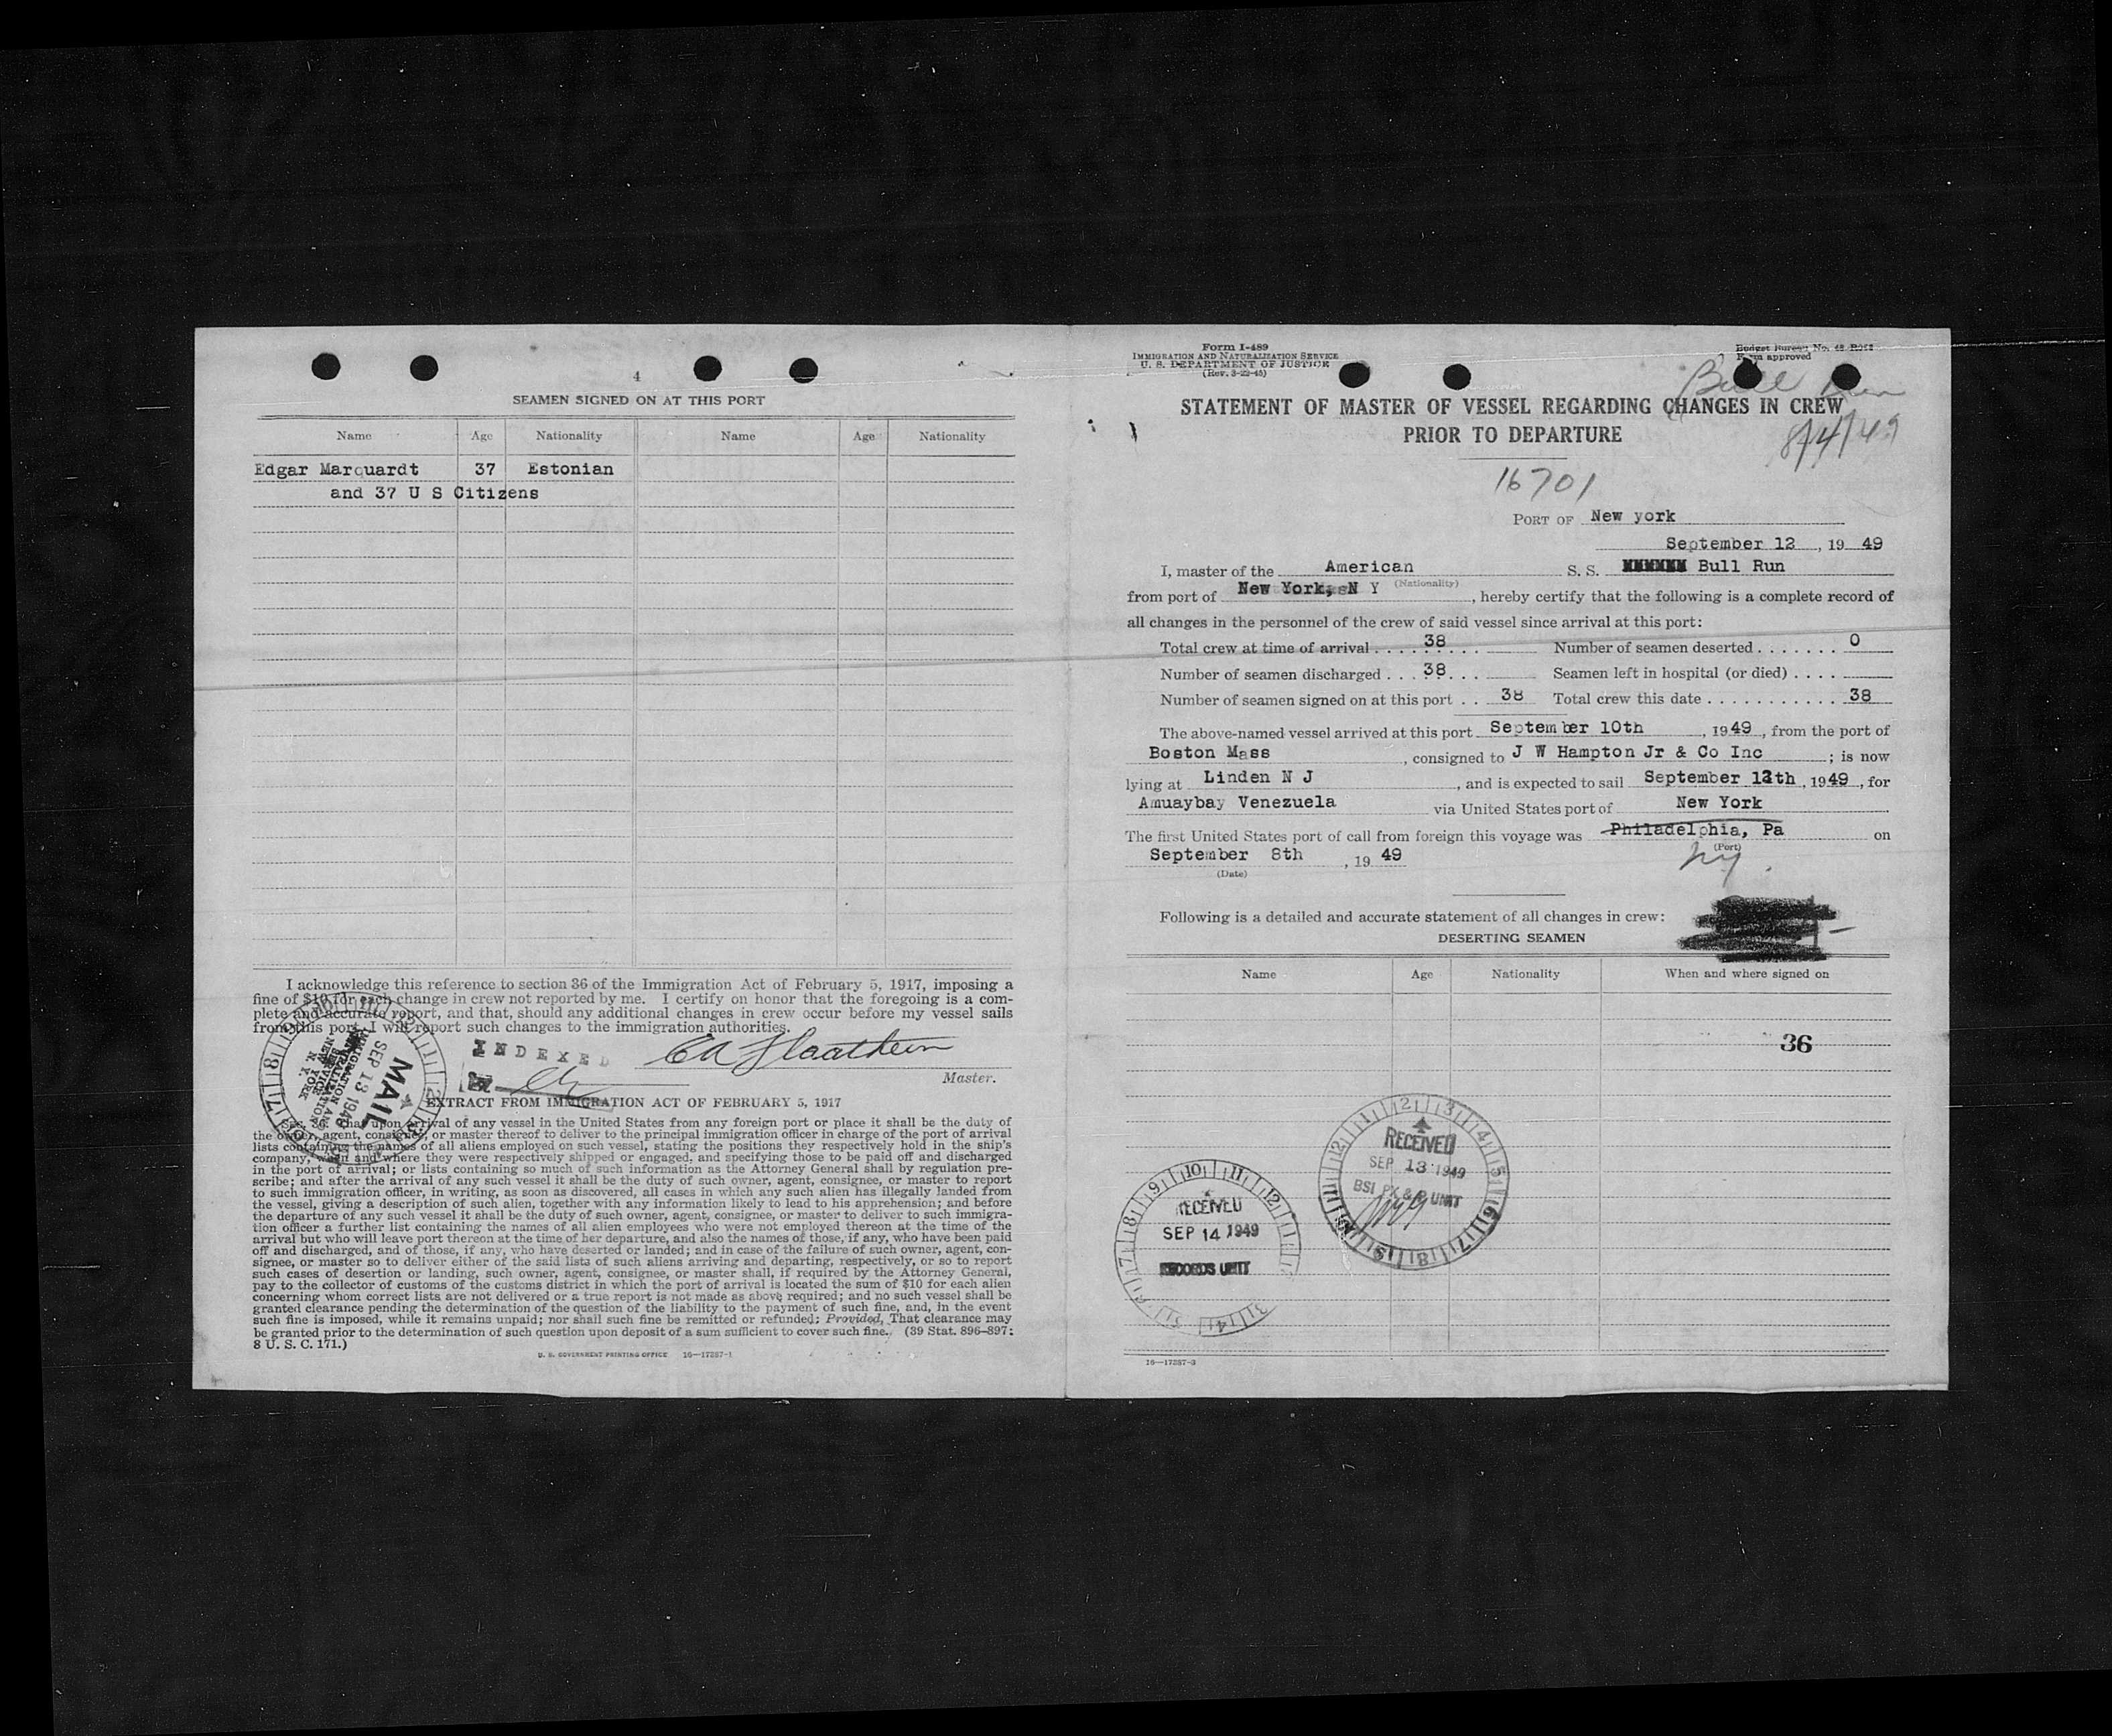 4
SEAMEN SIGNED ON AT THIS PORT
Name Age Nationality Name Age Nationality
Edgar Marquardt 37 Estonian
and 37 U S Citizens
I acknowledge this reference to section 36 of the Immigration Act of February 5, 1917, imposing a
fine of $10 for each change in crew not reported by me. I certify on honor that the foregoing is a com-
plete and accurate report, and that, should any additional changes in crew occur before my vessel sails
from this port, I will report such changes to the immigration authorities.
INDEXED
Master.
MAIL
SEP 13 1949
IMMIGRATION AND
NATURALIZATION
SERVICE
NEW YORK
N. Y.
EXTRACT FROM IMMIGRATION ACT OF FEBRUARY 5, 1917
Sec. 36. That upon arrival of any vessel in the United States from any foreign port or place it shall be the duty of
the owner, agent, consignee, or master thereof to deliver to the principal immigration officer in charge of the port of arrival
lists containing the names of all aliens employed on such vessel, stating the positions they respectively hold in the ship's
company, when and where they were respectively shipped or engaged, and specifying those to be paid off and discharged
in the port of arrival; or lists containing so much of such information as the Attorney General shall by regulation pre-
scribe; and after the arrival of any such vessel it shall be the duty of such owner, agent, consignee, or master to report
to such immigration officer, in writing, as soon as discovered, all cases in which any such alien has illegally landed from
the vessel, giving a description of such alien, together with any information likely to lead to his apprehension; and before
the departure of any such vessel it shall be the duty of such owner, agent, consignee, or master to deliver to such immigra-
tion officer a further list containing the names of all alien employees who were not employed thereon at the time of the
arrival but who will leave port thereon at the time of her departure, and also the names of those, if any, who have been paid
off and discharged, and of those, if any, who have deserted or landed; and in case of the failure of such owner, agent, con-
signee, or master so to deliver either of the said lists of such aliens arriving and departing, respectively, or so to report
such cases of desertion or landing, such owner, agent, consignee, or master shall, if required by the Attorney General,
pay to the collector of customs of the customs district in which the port of arrival is located the sum of $10 for each alien
concerning whom correct lists are not delivered or a true report is not made as above required; and no such vessel shall be
granted clearance pending the determination of the question of the liability to the payment of such fine, and, in the event
such fine is imposed, while it remains unpaid; nor shall such fine be remitted or refunded: Provided, That clearance may
be granted prior to the determination of such question upon deposit of a sum sufficient to cover such fine. (39 Stat. 896-897;
8 U. S. C. 171.)
U. S. GOVERNMENT PRINTING OFFICE 16—17287-1
Form I-489
IMMIGRATION AND NATURALIZATION SERVICE
U. S. DEPARTMENT OF JUSTICE
(Rev. 3-22-45)
Budget Bureau No.
Form approved
Bull Run
8/4/49
STATEMENT OF MASTER OF VESSEL REGARDING CHANGES IN CREW
PRIOR TO DEPARTURE
16701
PORT OF New york
September 12, 19 49
I, master of the American S. S. Bull Run
(Nationality)
from port of New York, N Y, hereby certify that the following is a complete record of
all changes in the personnel of the crew of said vessel since arrival at this port:
Total crew at time of arrival . . . . 38 . . . . Number of seamen deserted . . . . . . . 0
Number of seamen discharged . . . 38 . . . Seamen left in hospital (or died) . . . .
Number of seamen signed on at this port . . 38 Total crew this date . . . . . . . . . . . 38
The above-named vessel arrived at this port September 10th, 1949, from the port of
Boston Mass, consigned to J W Hampton Jr & Co Inc; is now
lying at Linden N J, and is expected to sail September 13th, 1949, for
Amuaybay Venezuela via United States port of New York
The first United States port of call from foreign this voyage was Philadelphia, Pa on
(Port)
NY.
September 8th, 19 49
(Date)
Following is a detailed and accurate statement of all changes in crew:
DESERTING SEAMEN
Name Age Nationality When and where signed on
36
RECEIVED
SEP 13 1949
BSI PX & B UNIT
RECEIVED
SEP 14 1949
RECORDS UNIT
16—17287-3